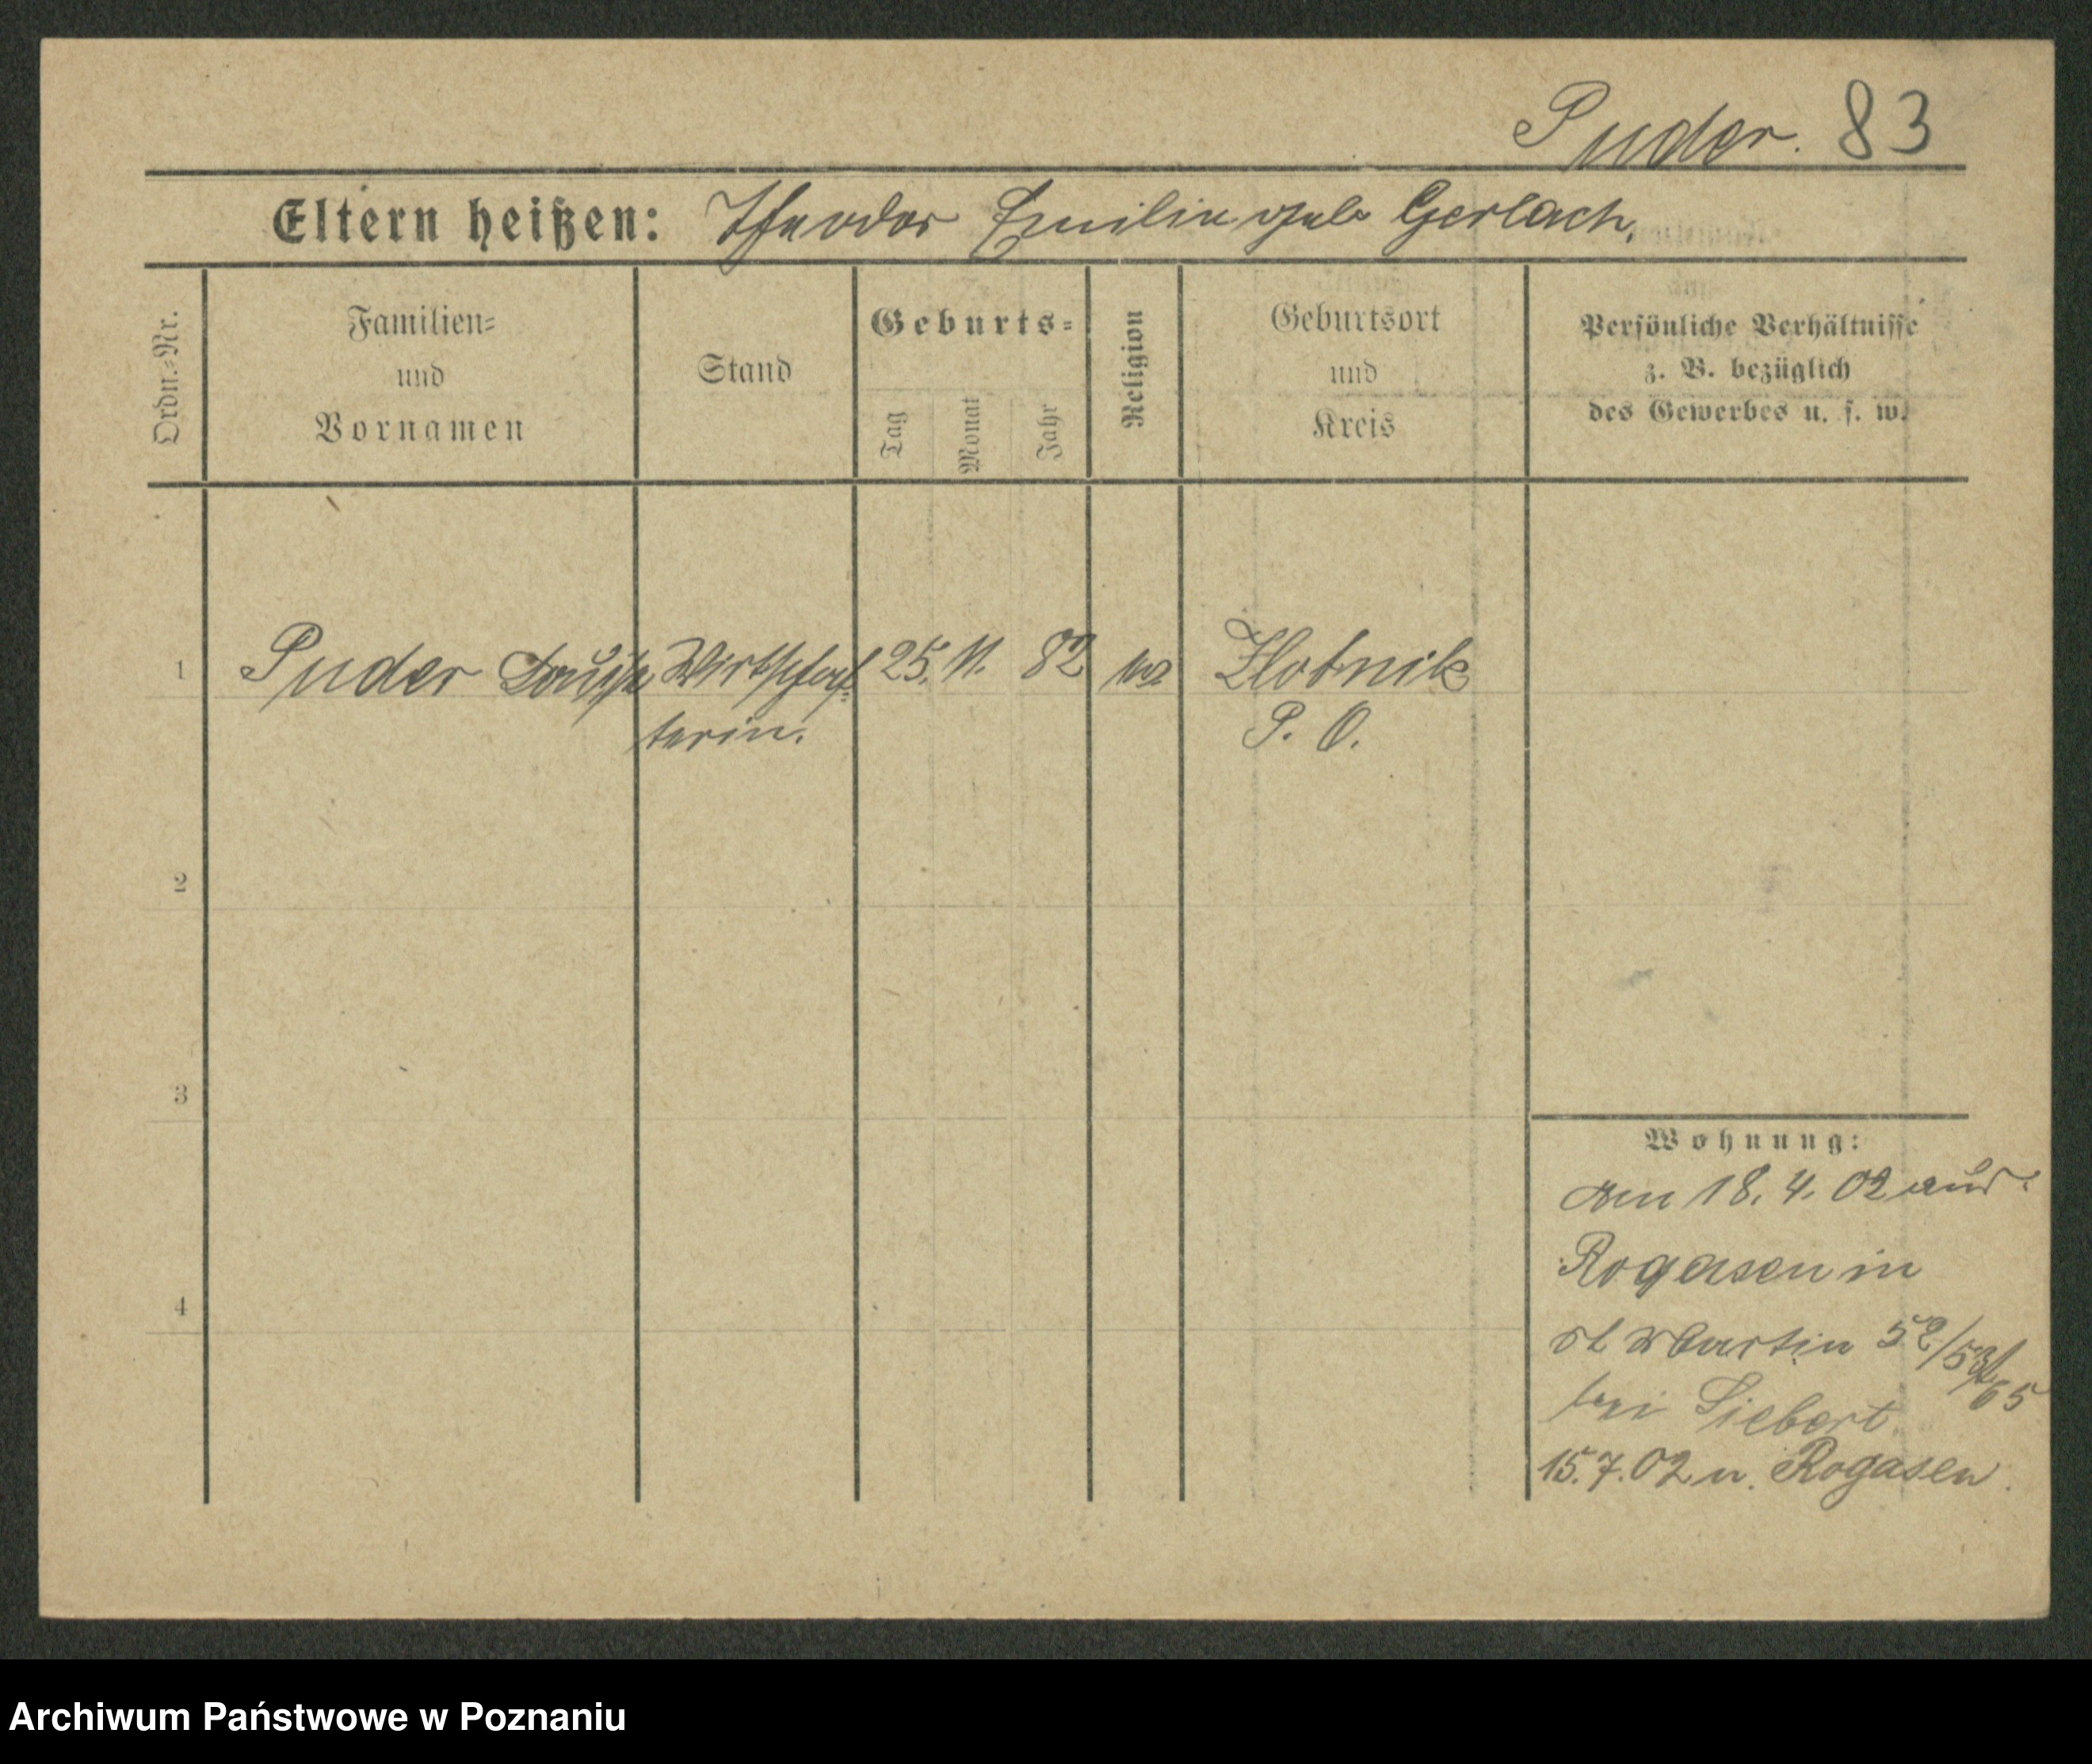 Puder. 83
Eltern heißen: Theodor Emilie geb Gerlach.
Ordn.=Nr.
Familien=
und
Vornamen
Stand
Geburts=
Tag
Monat
Jahr
Religion
Geburtsort
und
Kreis
Persönliche Verhältnisse
z. B. bezüglich
des Gewerbes u. s. w.
1 Puder Louise Wirtschaf= 25. 11. 82 Zlotnik
terin. P. O.
2
3
4
Wohnung:
Am 18. 4. 02 aus
Rogasen in
St Martin 52/53
bei Siebert
15. 7. 02 n. Rogasen.
Archiwum Państwowe w Poznaniu